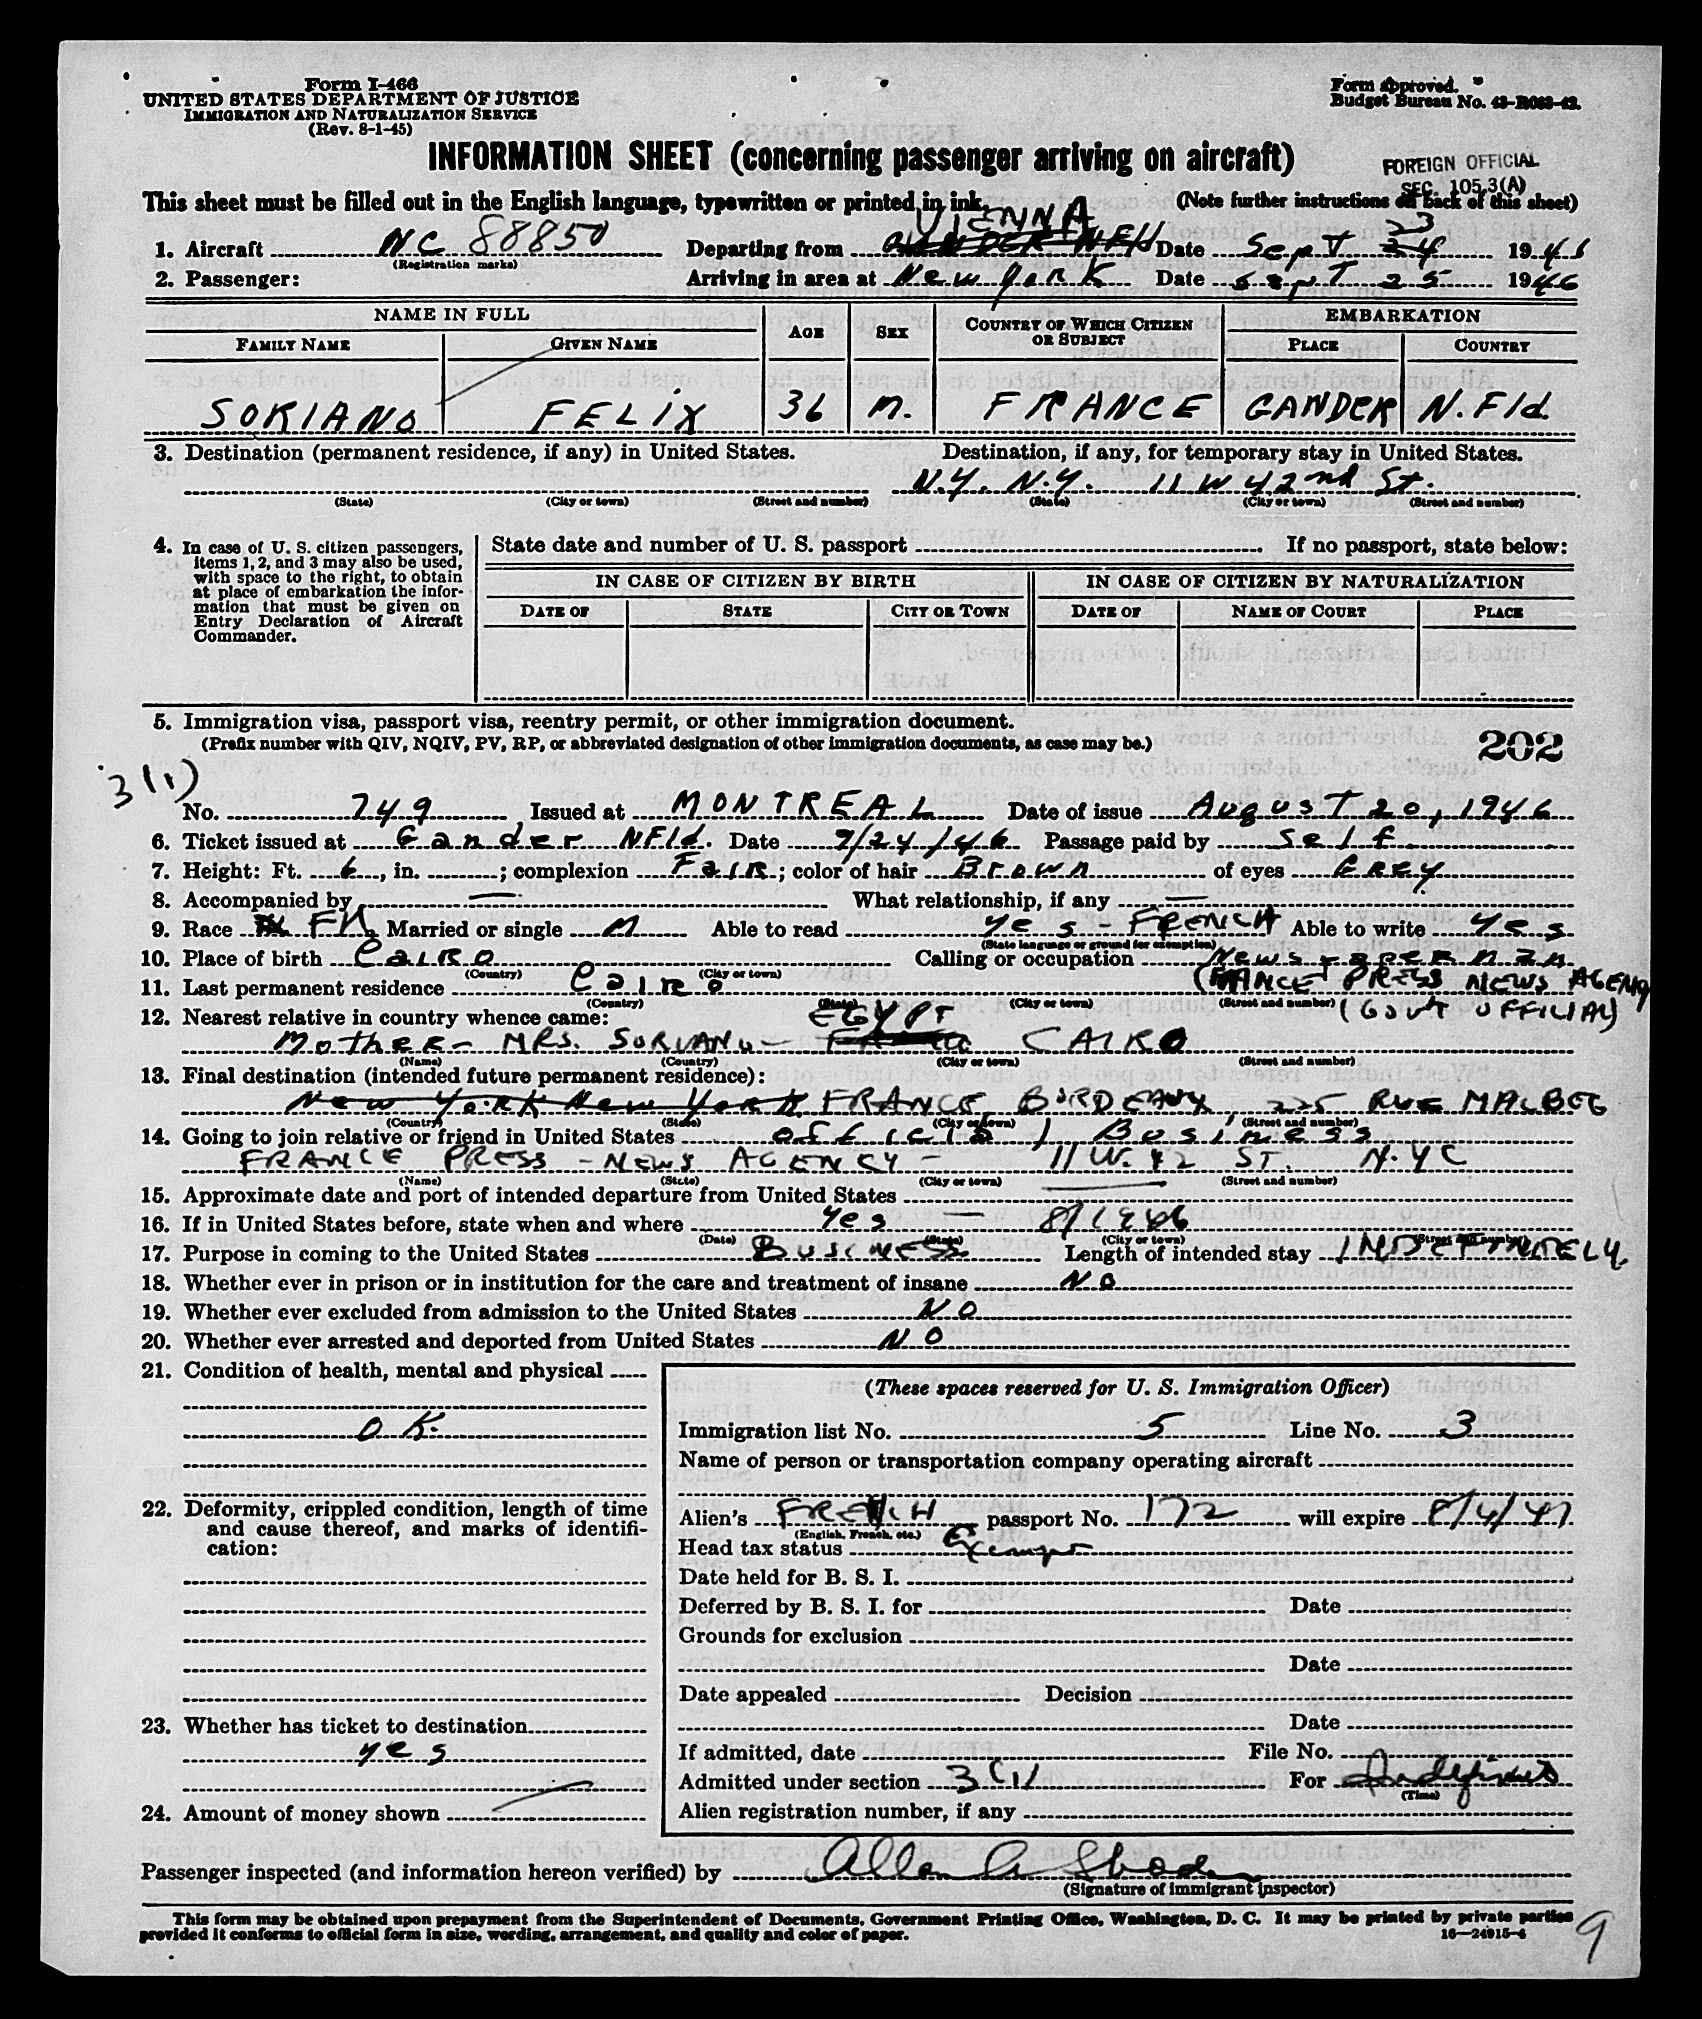 Form I-466
UNITED STATES DEPARTMENT OF JUSTICE
IMMIGRATION AND NATURALIZATION SERVICE
(Rev. 8-1-45)
Form approved.
Budget Bureau No.
INFORMATION SHEET (concerning passenger arriving on aircraft)
FOREIGN OFFICIAL
SEC. 105.3(A)
This sheet must be filled out in the English language, typewritten or printed in ink.
(Note further instructions on back of this sheet)
1. Aircraft NC 88850 Departing from VIENNA GANDER NFld Date Sept 24 23 1946
(Registration marks)
2. Passenger: Arriving in area at New York Date Sept 25 1946
NAME IN FULL AGE SEX COUNTRY OF WHICH CITIZEN OR SUBJECT EMBARKATION
FAMILY NAME GIVEN NAME PLACE COUNTRY
SORIANO FELIX 36 M. FRANCE GANDER N.Fld.
3. Destination (permanent residence, if any) in United States. Destination, if any, for temporary stay in United States.
N.Y. N.Y. 11 W 42nd St.
(State) (City or town) (Street and number) (State) (City or town) (Street and number)
4. In case of U. S. citizen passengers, items 1, 2, and 3 may also be used, with space to the right, to obtain at place of embarkation the information that must be given on Entry Declaration of Aircraft Commander.
State date and number of U. S. passport If no passport, state below:
IN CASE OF CITIZEN BY BIRTH IN CASE OF CITIZEN BY NATURALIZATION
DATE OF STATE CITY OR TOWN DATE OF NAME OF COURT PLACE
5. Immigration visa, passport visa, reentry permit, or other immigration document.
(Prefix number with QIV, NQIV, PV, RP, or abbreviated designation of other immigration documents, as case may be.)
202
3(1)
No. 749 Issued at MONTREAL Date of issue August 20, 1946
6. Ticket issued at Gander NFld. Date 9/24/46 Passage paid by Self
7. Height: Ft. 6, in. ; complexion Fair; color of hair Brown of eyes Grey
8. Accompanied by — What relationship, if any —
9. Race FR Married or single M Able to read yes - FRENCH Able to write yes
(State language or ground for exemption)
10. Place of birth Cairo Calling or occupation Newspaperman
(Country) (City or town)
(FRANCE PRESS NEWS AGENCY
11. Last permanent residence Cairo
(Country) (State) (City or town) (Street and number)
(GOVT OFFICIAL)
12. Nearest relative in country whence came: EGYPT
Mother - MRS. SORIANO - CAIRO
(Name) (Country) (City or town) (Street and number)
13. Final destination (intended future permanent residence):
New York New York FRANCE, BORDEAUX, 225 RUE MALBEC
(Country) (State) (City or town) (Street and number)
14. Going to join relative or friend in United States official Business
FRANCE PRESS - NEWS AGENCY - 11 W. 42 ST. N.Y.C
(Name) (State) (City or town) (Street and number)
15. Approximate date and port of intended departure from United States —
16. If in United States before, state when and where yes — 8/1946
(Date) (State) (City or town) (Street and number)
17. Purpose in coming to the United States BUSINESS Length of intended stay INDEFINITELY
18. Whether ever in prison or in institution for the care and treatment of insane NO
19. Whether ever excluded from admission to the United States NO
20. Whether ever arrested and deported from United States NO
21. Condition of health, mental and physical
O K.
22. Deformity, crippled condition, length of time and cause thereof, and marks of identification:
23. Whether has ticket to destination
yes
24. Amount of money shown
(These spaces reserved for U. S. Immigration Officer)
Immigration list No. 5 Line No. 3
Name of person or transportation company operating aircraft
Alien's FRENCH passport No. 172 will expire 8/4/47
(English, French, etc.)
Head tax status Exempt
Date held for B. S. I.
Deferred by B. S. I. for Date
Grounds for exclusion
Date
Date appealed Decision
Date
If admitted, date File No.
Admitted under section 3(1) For Indefinite
(Time)
Alien registration number, if any
Passenger inspected (and information hereon verified) by Allen A
(Signature of immigrant inspector)
This form may be obtained upon prepayment from the Superintendent of Documents, Government Printing Office, Washington, D. C. It may be printed by private parties
provided it conforms to official form in size, wording, arrangement, and quality and color of paper.
16—24915-4
9